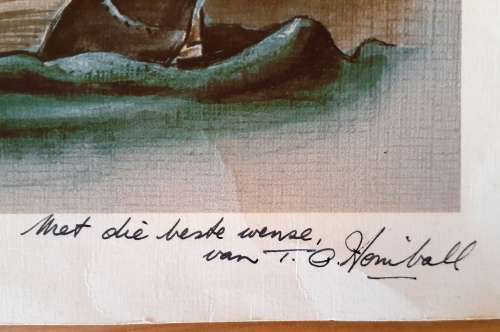 Met die beste wense,
van T. O. Honiball